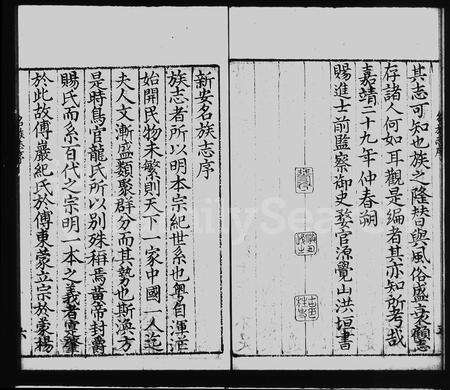 其志可知也族之隆替與風俗盛衰顧
存諸人何如耳觀是編者其亦知所考哉
嘉靖二十九年仲春朔
賜進士前監察御史婺官源覺山洪垣書
新安名族志序
族志者所以明本宗紀世系也粵自渾茫
始開民物未繁則天下一家中國一人迄
夫人文漸盛類聚群分而其勢也斯渙方
是時鳥官龍氏所以別殊稱焉黃帝封爵
賜氏而系百代之宗明一本之義者寔肇
於此故傅巖紀氏於傅東蒙立宗於蒙楊
六